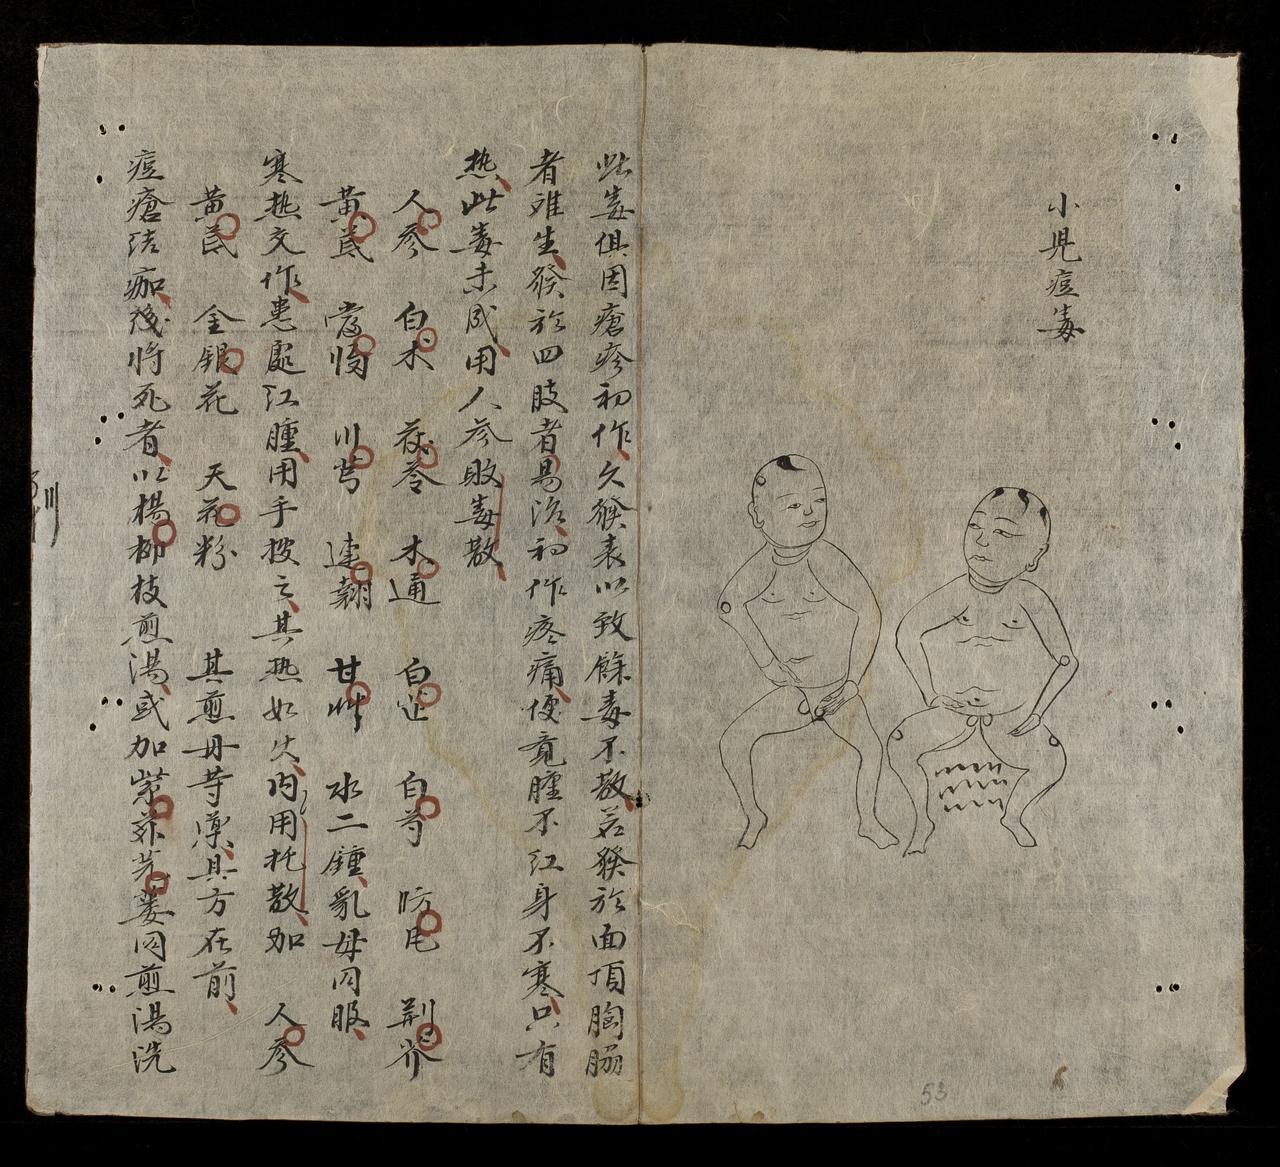 小兒痘毒
此毒俱因瘡疹初作欠發表以致餘毒不散若發於面頂胸脇
者难生發於四肢者易治初作疼痛便竟腫不紅身不寒只有
热此毒未成用人參敗毒散
人參 白朮 茯苓 木通 白芷 白芍 防風 荆芥
黃芪 當歸 川芎 連翹 甘艸 水二鍾乳母同服
寒热交作患處红腫用手按之其热如火内用托散加 人參
黃芪 金銀花 天花粉 其煎母等藥具方在前
痘瘡结痂後將死者以楊柳枝煎湯或加紫蘇芫荽同煎湯洗
53